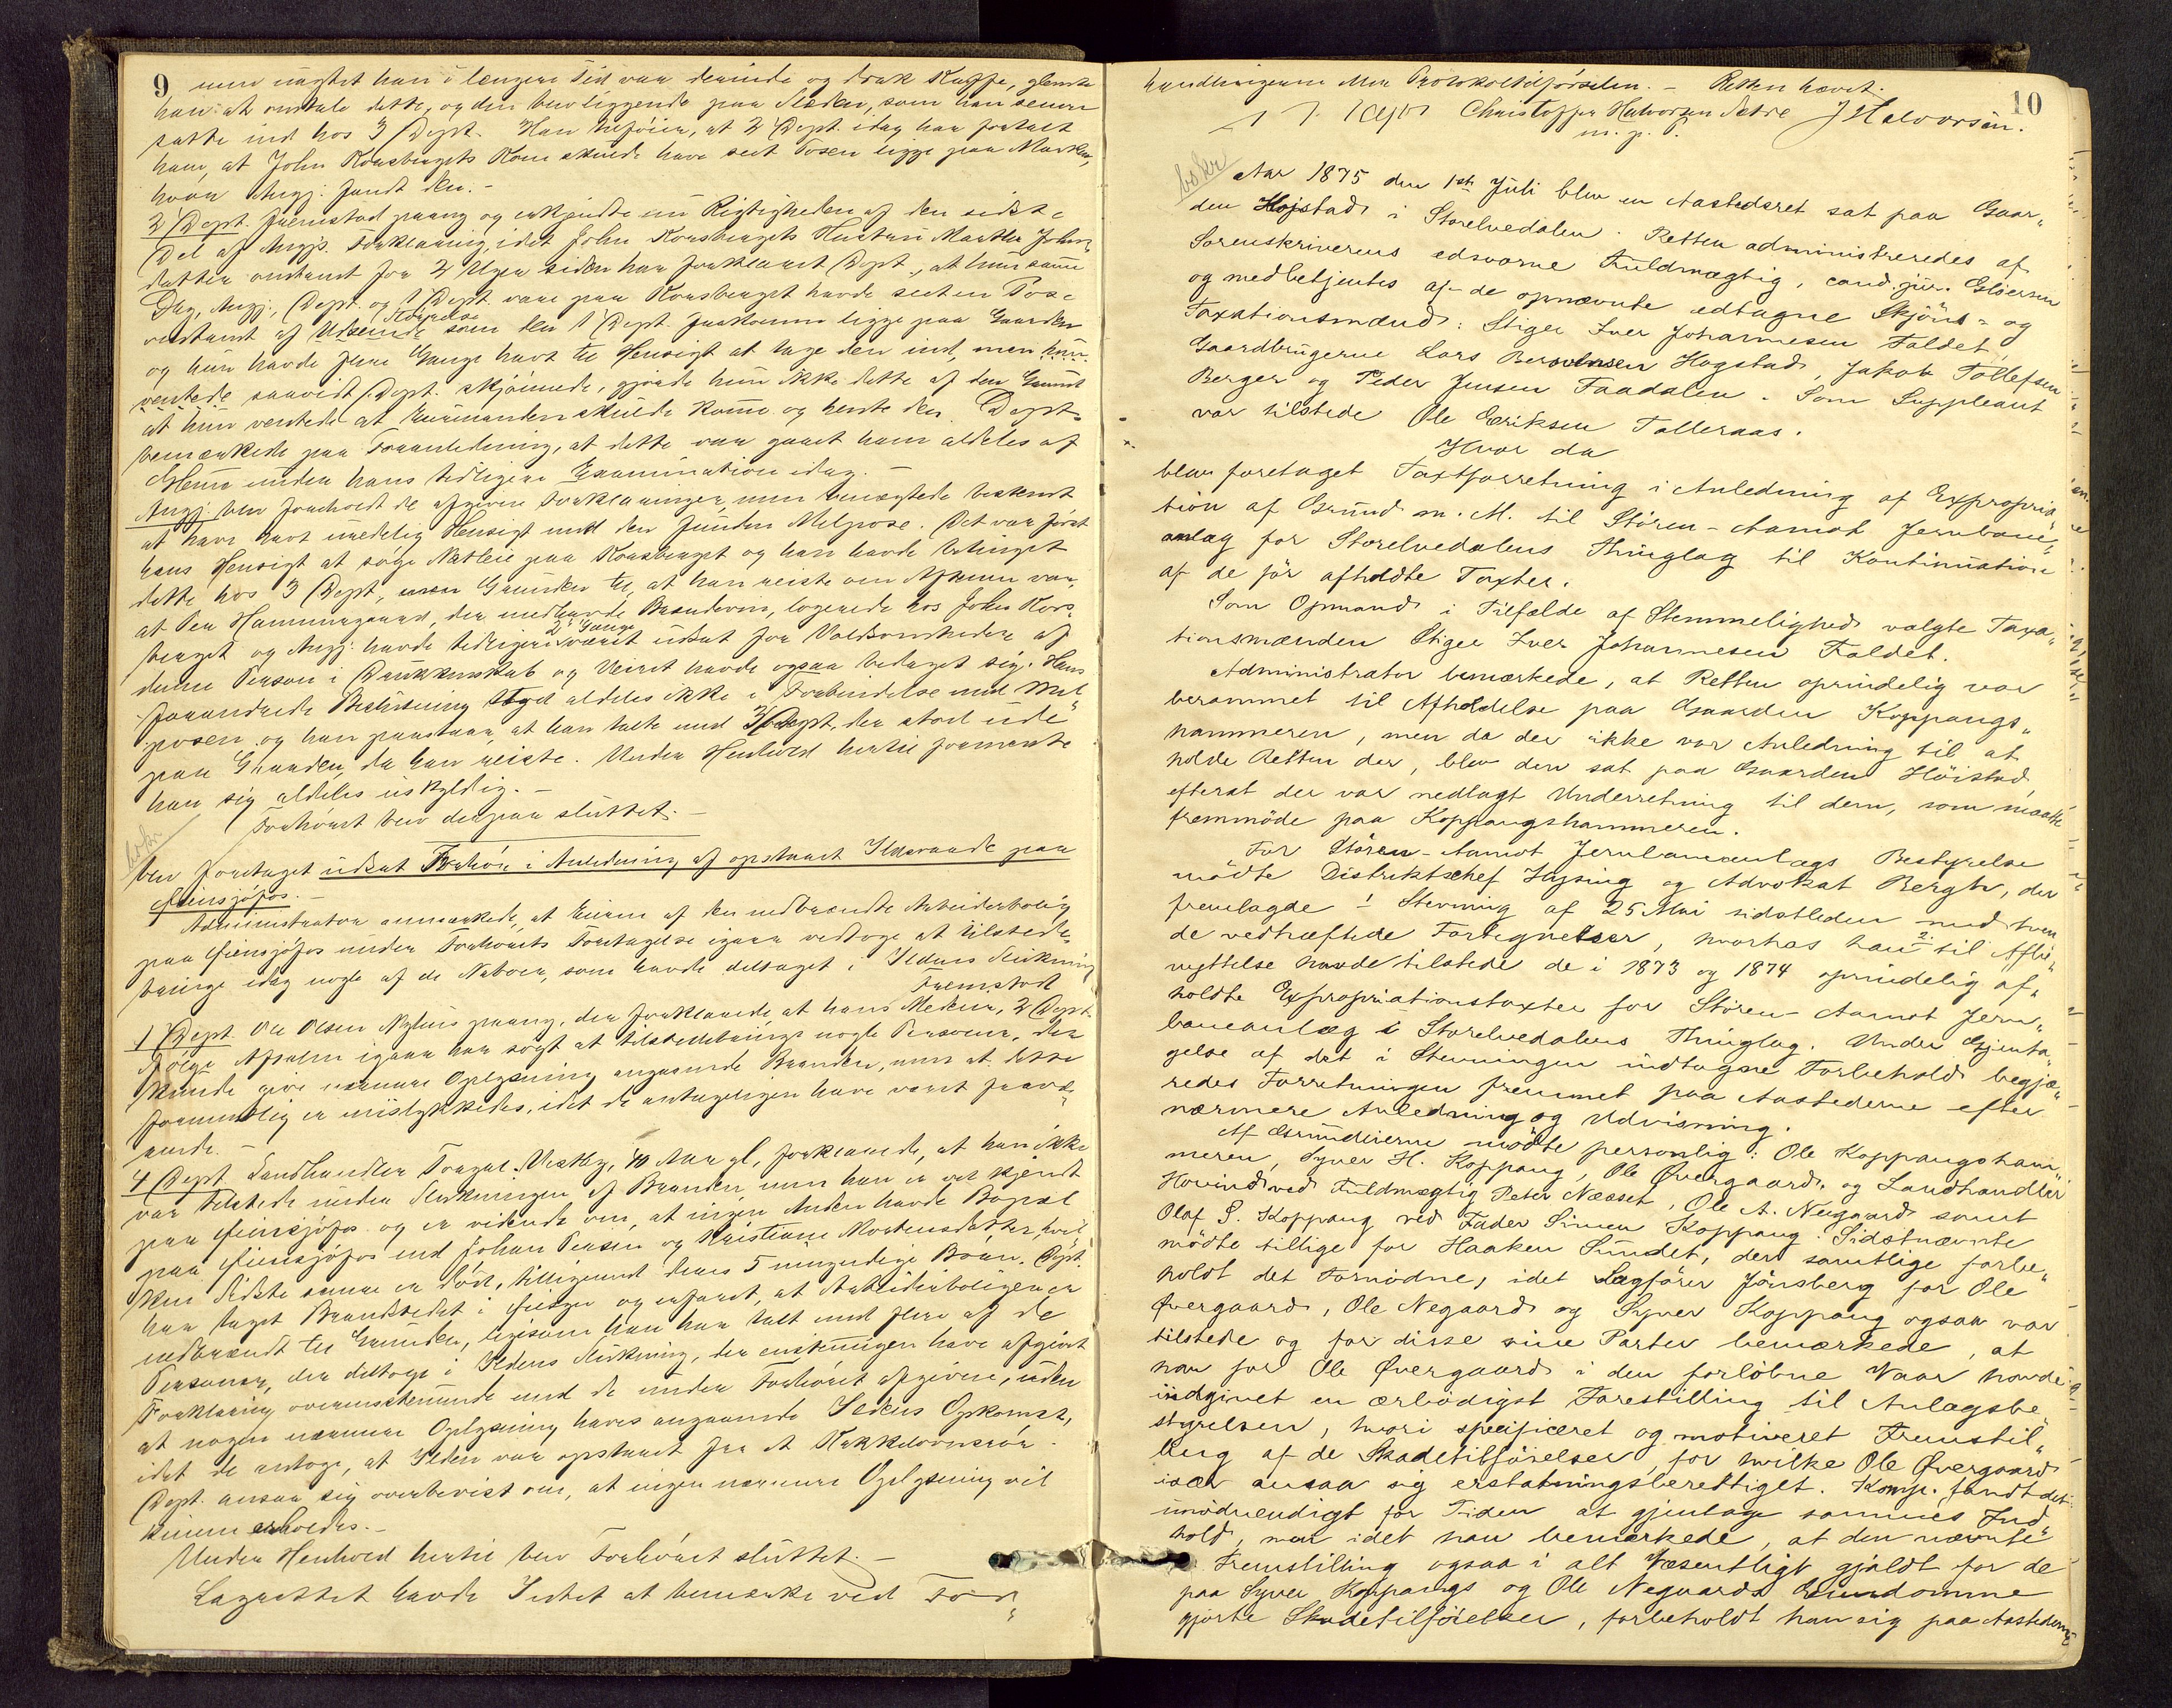 9
men uagtet han i længere Tid var derinde og drak Kaffe, glemte
han at omtale dette, og den blev liggende paa Slæden, som han senere
satte ind hos 3 Dept. Han tilføier, at 2 Dept. idag har fortalt
ham, at John Korsbergets Kone skulde have seet Posen ligge paa Marken,
hvor Angj. fandt den.-
2 Dept. Fremstod paany og erkjendte nu Rigtigheden af den sidste
Del af Angjs. Forklaring, idet John Korsbergets Hustru Marthe Johns-
datter omtrent for 2 Uger siden har forklaret Dept., at hun samme
Dag, Angj., Dept. og 1 Dept. vare paa Korsberget havde seet en Pose
omtrent af Udseende Størrelse som den 1 Dept. forkommne ligge paa Gaarden
og hun havde flere Gange havt til Hensigt at tage den ind, men
saavidt Dept. skjønnede, gjorde hun ikke dette af den Grund
at hun ventede at Eiermanden skulde komme og hente den. Dept.
bemærkede paa Foranledning, at dette var gaaet ham aldeles af
Glemme under hans tidligere Examination idag. -
Angj. blev foreholdt de afgivne Forklaringer, men benægtede bestemt
at have havt uredelig Hensigt med den fundne Melpose. Det var først
hans Hensigt at søge Natleie paa Korsberget og han havde betinget
dette hos 3 Dept, men Grunden til, at han reiste om Aftenen var,
at Per Hammergaard, der medhavde Brændevin, logerede hos John Kors-
berget og Angj. havde tidligere 2 Gange været udsat for Voldsomheder af
denne Person i Drukkenskab og Veiret havde ogsaa bedaget sig. Hans
forandrede Beslutning stod aldeles ikke i Forbindelse med Mel-
posen, og han paastaar, at han talte med 3 Dept. der stod ude
paa Gaarden, da han reiste. Under Henhold hertil formente
han sig aldeles uskyldig.-
Forhøret blev derpaa sluttet.-
blev foretaget udsat Forhør i Anledning af opstaaet Ildsvaade paa
Finsjøfos.-
Administrator anmærkede, at Eieren af den nedbrændte Arbeiderbolig
paa Finsjøfos under Forhørets Foretagelse igaar vedtoge at tilstede-
bringe idag nogle af de Naboer, som havde deltaget i Ildens Slukning
Fremstod
1 Dept Ole Olsen Nyhus paany, der forklarede at hans Medeier, 2 Dept.
ifølge Aftalen igaar har søgt at tilstedebringe nogle Personer, der
kunde give nærmere Oplysning angaaende Branden, men at dette
formentlig er mislykkedes, idet de antageligen have været fravæ-
rende.-
4 Dept Landhandler Torger Mestby, 40 Aar gl., forklarede, at han ikke
var tilstede under Slukningen af Branden men han er vel kjendt
paa Finsjøfos og er vidende om, at ingen Anden havde Bopæl
paa Finsjøfos end Johan Persen og Kristiane Mortensdatter, hvil-
ken sidste senere er død, tilligemed deres 5 umyndige Børn. Dept.
har taget Brandstedet i Øiesyn og erfaret, at Arbeiderboligen er
nedbrændt til Grunden, ligesom han har talt med flere af de
Personer, der deltoge i Ildens Slukning, der enstemmigen have afgivet
Forklaring overensstemmende med de under Forhøret afgivne, uden
at nogen nærmere Oplysning haves angaaende Ildens Opkomst,
idet de antoge, at Ilden var opstaaet fra et Kakkelovnsrør.
Dept. ansaa sig overbevist om, at ingen nærmere Oplysning vil
kunne erholdes.-
Under Henhold hertil blev Forhøret sluttet.-
Lagrettet havde Intet at bemærke ved For-
10
handlingerne eller Protokoltilførselen. - Retten hævet.
Christopher Halvorsen Sætre J Halvorsen.
m. p. P.
Aar 1875 den 1ste Juli blev en Aastedsret sat paa Gaar„
den Højstad i Storelvedalen. Retten administreredes af
Sorenskriverens edsvorne Fuldmægtig, cand. jur. Gløersen
og medbetjentes af de opnævnte edtagne Skjøns- og
Taxationsmænd: Stiger Iver Johannesen Faldet,
Gaardbrugerne Lars Berntsen Hogstad, Jakob Tollefsen
Berger og Peder Jensen Faadalen. Som Suppleant
var tilstede Ole Eriksen Tolleraas.
Hvor da
blev foretaget Taxtforretning i Anledning af Expropria„
tion af Grund m. M. til Støren-Aamot Jernbane„
anlæg for Storelvedalens Thinglag til Kontinuation
af de før afholdte Taxter.
Som Opmand i Tilfælde af Stemmelighed valgte Taxa„
tionsmænden Stiger Iver Johannesen Faldet.
Administrator bemærkede, at Retten oprindelig var
berammet til Afholdelse paa Gaarden Koppangs„
hammeren, men da der ikke var Anledning til at
holde Retten der, blev den sat paa Gaarden Höistad,
efterat der var nedlagt Underretning til dem, som maatte
fremmøde paa Koppangshammeren.
For Støren-Aamot Jernbaneanlægs Bestyrelse
mødte Distriktschef Hysing og Advokat Bergh, der
fremlagde 1 Stevning af 25 Mai sidstleden med tven„
de vedhæftede Fortegnelser, hvorhos han 2 til Afbe„
nyttelse havde tilstede de i 1873 og 1874 oprindelig af„
holdte Expropriationstaxter for Støren-Aamot Jern„
baneanlæg i Storelvedalens Thinglag. Under Gjenta„
gelse af det i Stevningen indtagne Forbehold begjæ„
redes Forretningen fremmet paa Aastederne efter
nærmere Anledning og Udvisning.
Af Grundeierne mødte personlig: Ole Koppangsham„
meren, Syver H. Koppang, Ole Øvergaard, og Landhandler
Hovind ved Fuldmægtig Peter Næsset, Ole A. Negaard samt
Olaf S. Koppang ved Fader Simen Koppang. Sidstnævnte
mødte tillige for Haaken Sundet, der samtlige forbe„
holdt det Fornødne, idet Sagfører Jönsberg for Ole
Øvergaard, Ole Negaard og Syver Koppang ogsaa var
tilstede og for disse sine Parter bemærkede, at
han for Ole Øvergaard i den forløbne Vaar havde
indgivet en ærbødigst Forestilling til Anlægsbe„
styrelsen, hvori specificeret og motiveret Fremstil„
ling af de Skadetilføielser, for hvilke Ole Øvergaard
især ansaa sig erstatningsberettiget. Komp. fandt det
unødvendigt for Tiden at gjentage sammes Ind„
hold, men idet han bemærkede, at den nævnte
Fremstilling ogsaa i alt Væsentligt gjaldt for de
paa Syver Koppangs og Ole Negaards Eiendomme
gjorte Skadetilføielser, forbeholdt han sig paa Aastederne